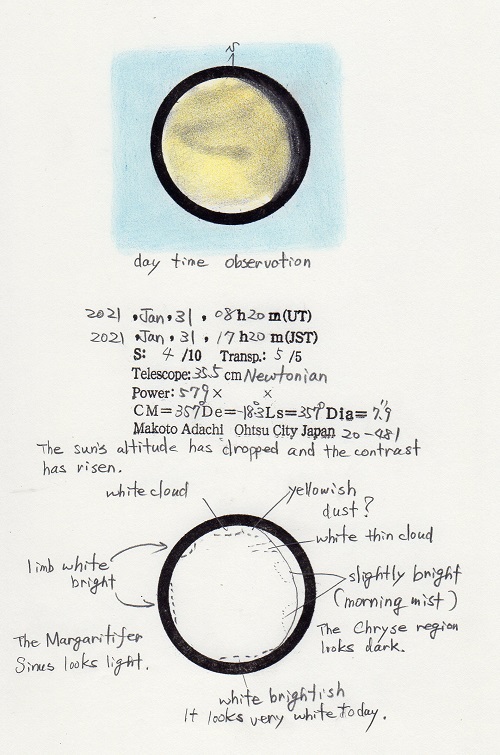 N
day time observation
2021 , Jan , 31 , 08h20 m(UT)
2021 , Jan , 31 , 17h20 m(JST)
S: 4 /10 Transp.: 5 /5
Telescope: 35.5 cm Newtonian
Power: 579 × ×
CM=357° De=-18.3 Ls=357° Dia= 7."9
Makoto Adachi Ohtsu City Japan 20-481
The sun's altitude has dropped and the contrast
has risen.
white cloud
yellowish
dust?
white thin cloud
limb white
bright
slightly bright
(morning mist)
The Margaritifer
Sinus looks light.
The Chryse region
looks dark.
white brightish
It looks very white today.